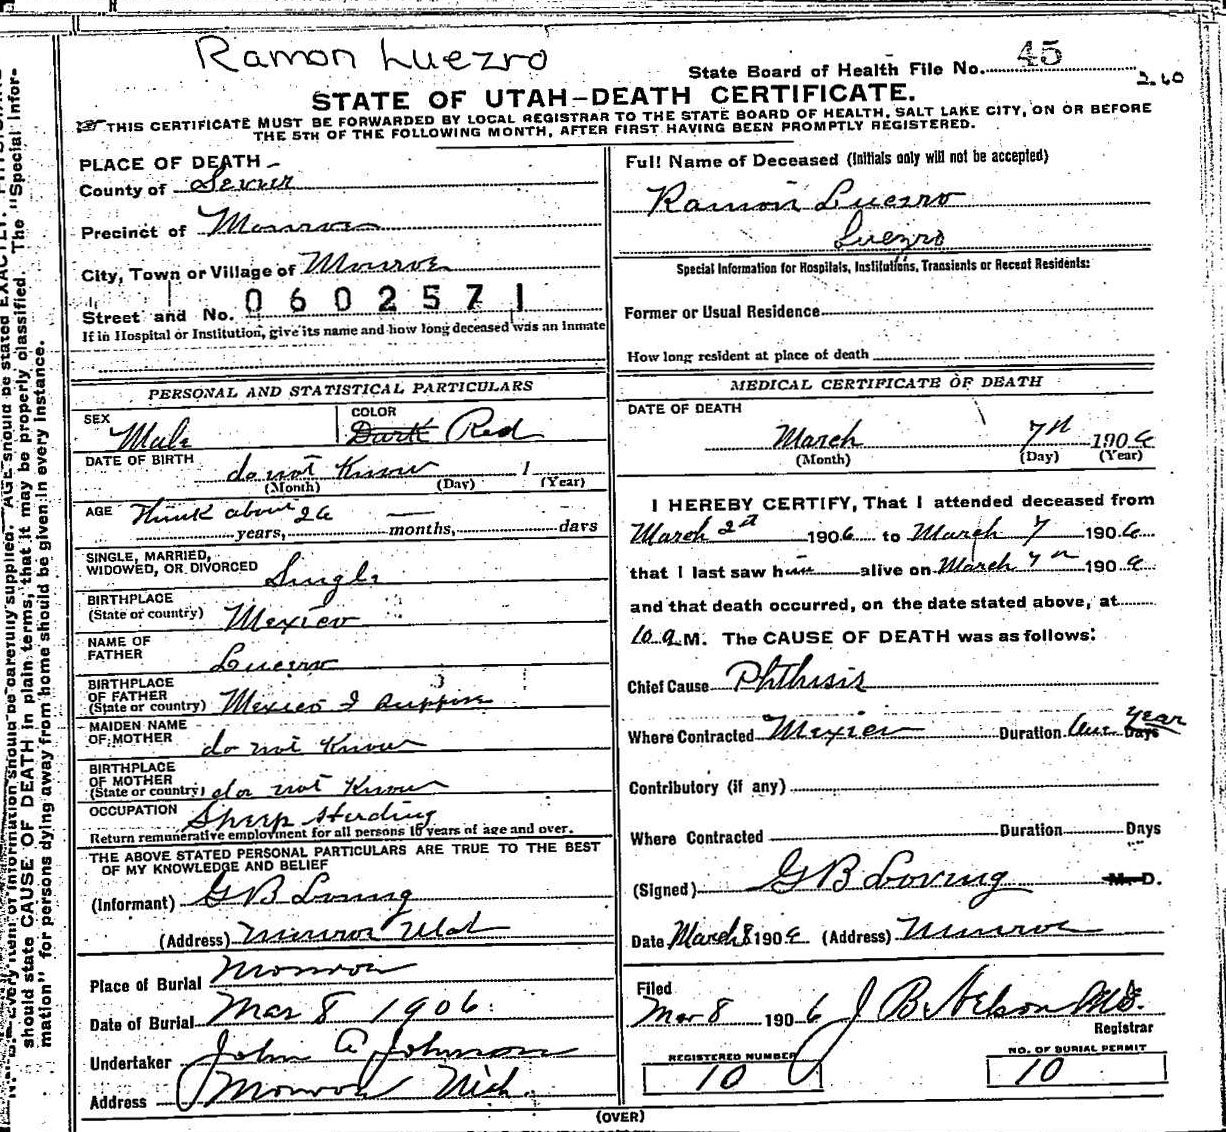 Ramon Luezro
State Board of Health File No. 45
2.60
STATE OF UTAH-DEATH CERTIFICATE.
THIS CERTIFICATE MUST BE FORWARDED BY LOCAL REGISTRAR TO THE STATE BOARD OF HEALTH, SALT LAKE CITY, ON OR BEFORE
THE 5TH OF THE FOLLOWING MONTH, AFTER FIRST HAVING BEEN PROMPTLY REGISTERED.
PLACE OF DEATH
County of Sevier
Precinct of Monroe
City, Town or Village of Monroe
0602571
Street and No.
If in Hospital or Institution, give its name and how long deceased was an Inmate
PERSONAL AND STATISTICAL PARTICULARS
SEX Male
COLOR Dark Red
DATE OF BIRTH do not Know
(Month) (Day) (Year)
AGE Think about 26 years, — months, days
SINGLE, MARRIED,
WIDOWED, OR DIVORCED Single
BIRTHPLACE
(State or country) Mexico
NAME OF
FATHER Luezro
BIRTHPLACE
OF FATHER
(State or country) Mexico I suppose
MAIDEN NAME
OF MOTHER do not Know
BIRTHPLACE
OF MOTHER
(State or country) do not Know
OCCUPATION Sheep Herding
Return remunerative employment for all persons 10 years of age and over.
THE ABOVE STATED PERSONAL PARTICULARS ARE TRUE TO THE BEST
OF MY KNOWLEDGE AND BELIEF
(Informant) G B Loving
(Address) Monroe Utah
Place of Burial Monroe
Date of Burial Mar 8 1906
Undertaker John A Johnson
Address Monroe
Full Name of Deceased (Initials only will not be accepted)
Ramon Luezro
Luezro
Special Information for Hospitals, Institutions, Transients or Recent Residents:
Former or Usual Residence
How long resident at place of death
MEDICAL CERTIFICATE OF DEATH
DATE OF DEATH
March 7th 1906
(Month) (Day) (Year)
I HEREBY CERTIFY, That I attended deceased from
March 2nd 1906 to March 7 1906
that I last saw him alive on March 7th 1906
and that death occurred, on the date stated above, at
10 a M. The CAUSE OF DEATH was as follows:
Chief Cause Phthisis
Where Contracted Mexico Duration One Year Days
Contributory (if any)
Where Contracted Duration Days
(Signed) G B Loving M. D.
Date March 8 1906 (Address) Monroe
Filed
Mar 8 1906 J B Nelson MD.
Registrar
REGISTERED NUMBER
10
NO. OF BURIAL PERMIT
10
(OVER)
should state CAUSE OF DEATH in plain terms, that it may be properly classified. The "Special Infor-
mation" for persons dying away from home should be given in every instance.